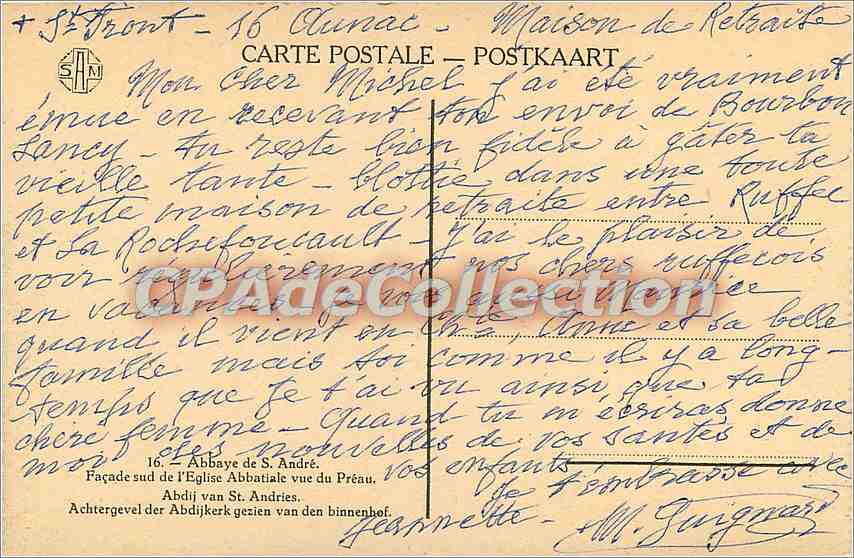 + St Front - 16 Aunac - Maison de Retraite
SAM
CARTE POSTALE — POSTKAART
Mon cher Michel j'ai été vraiment
émue en recevant ton envoi de Bourbon
Lancy - Tu reste bien fidèle à gâter ta
vieille tante - blottie dans une toute
petite maison de retraite entre Ruffec
et La Rochefoucault - J'ai le plaisir de
voir régulièrement nos chers ruffecois
en vacances je vois aussi Maurice
CPAdeCollection.com
quand il vient en Ch te, Anne et sa belle
famille mais toi comme il y a long-
temps que je t'ai vu ainsi que ta
chère femme - Quand tu m'écriras donne
moi des nouvelles de vos santés et de
vos enfants
Je t'embrasse avec
Jeannette - M. Guignard
16. — Abbaye de S. André.
Façade sud de l'Eglise Abbatiale vue du Préau.
Abdij van St. Andries.
Achtergevel der Abdijkerk gezien van den binnenhof.